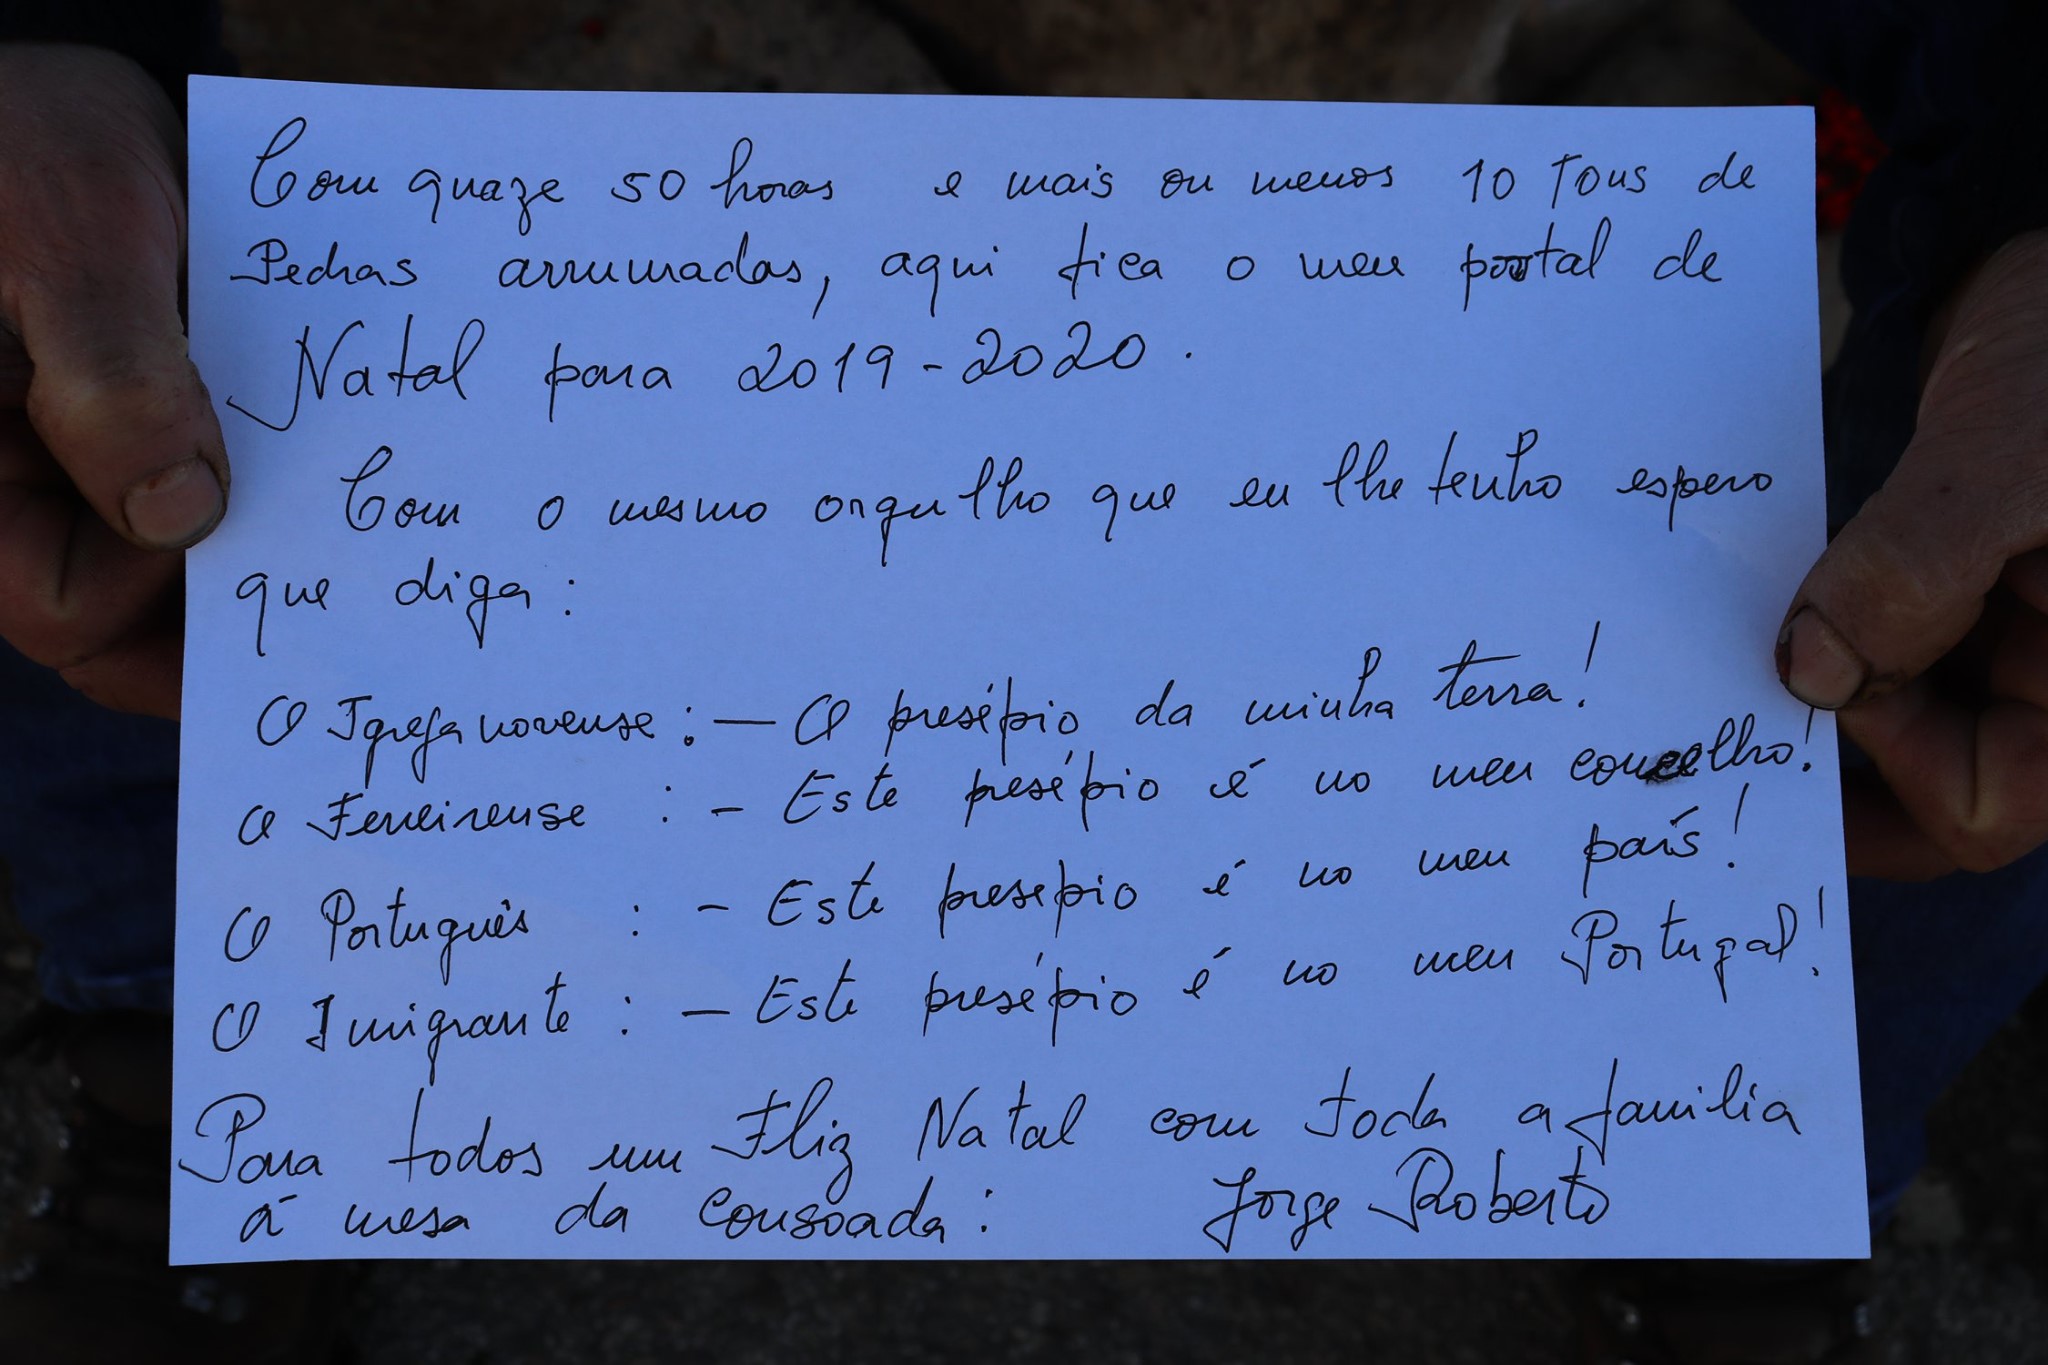 Com quaze 50 horas e mais ou menos 10 Tons de
Pedras arrumadas, aqui fica o meu portal de
Natal para 2019-2020.
Com o mesmo orgulho que eu lhe tenho espero
que diga:
O Igrejanovense: — O presépio da minha terra!
O Ferreirense : - Este presépio é no meu concelho!
O Português : - Este presépio é no meu país!
O Imigrante : - Este presépio é no meu Portugal!
Para todos um Fliz Natal com toda a familia
á mesa da consoada: Jorge Roberto